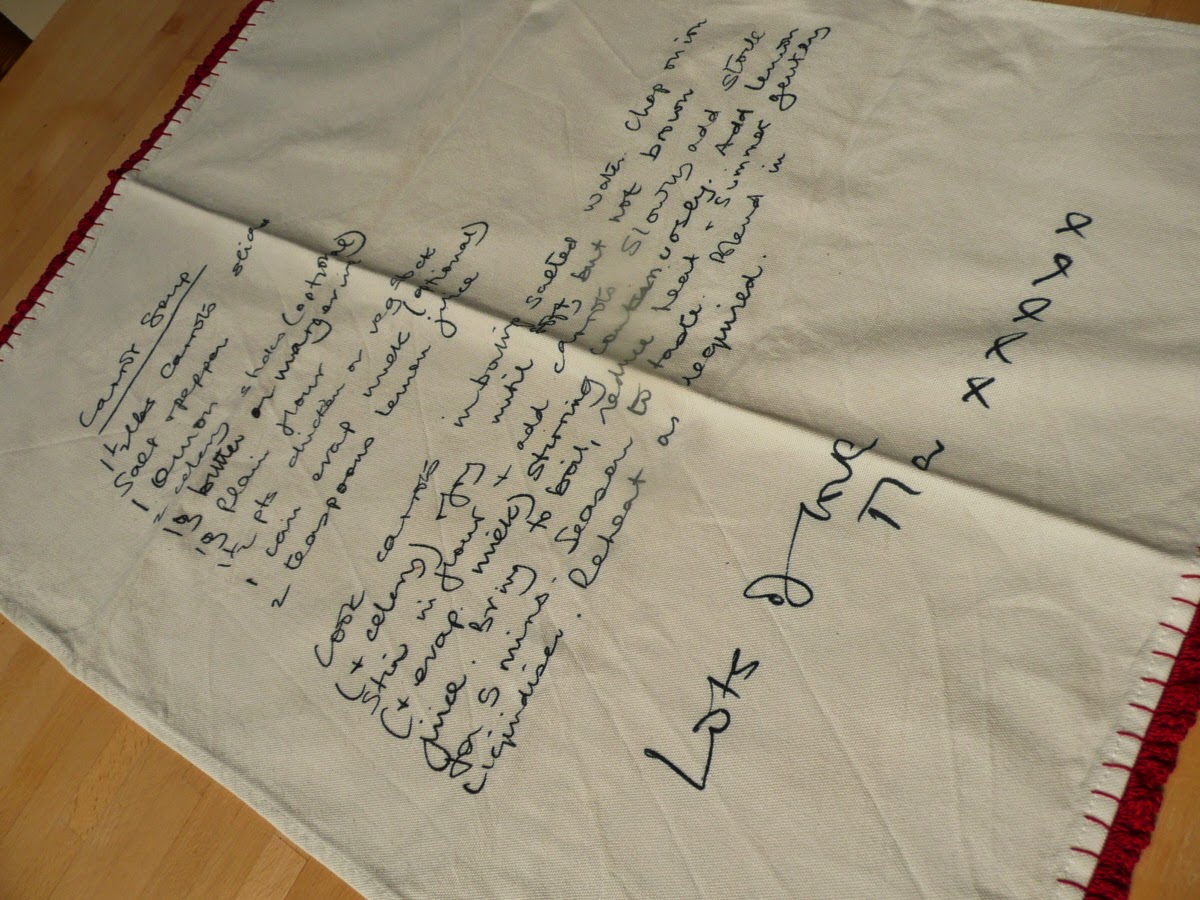 Carrot Soup
1½ lbs carrots
Salt + pepper
1 onion
celery sticks (optional)
butter or margarine
plain flour
1½ pts chicken or veg stock
1 can evap milk (optional)
2 teaspoons lemon juice
Cook carrots in boiling salted water. Chop onion
(+ celery) fry until soft but not brown
Stir in flour + add carrots. Slowly add stock
(+ evap. milk) stirring continuously. Add lemon
juice. Bring to boil, reduce heat + simmer gently
for 5 mins. Season to taste. Blend in
liquidiser. Reheat as required.
Lots of love
Ma
x x x x x